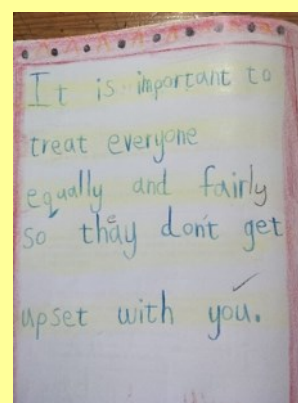 It is important to
treat everyone
equally and fairly
so they don't get
upset with you.